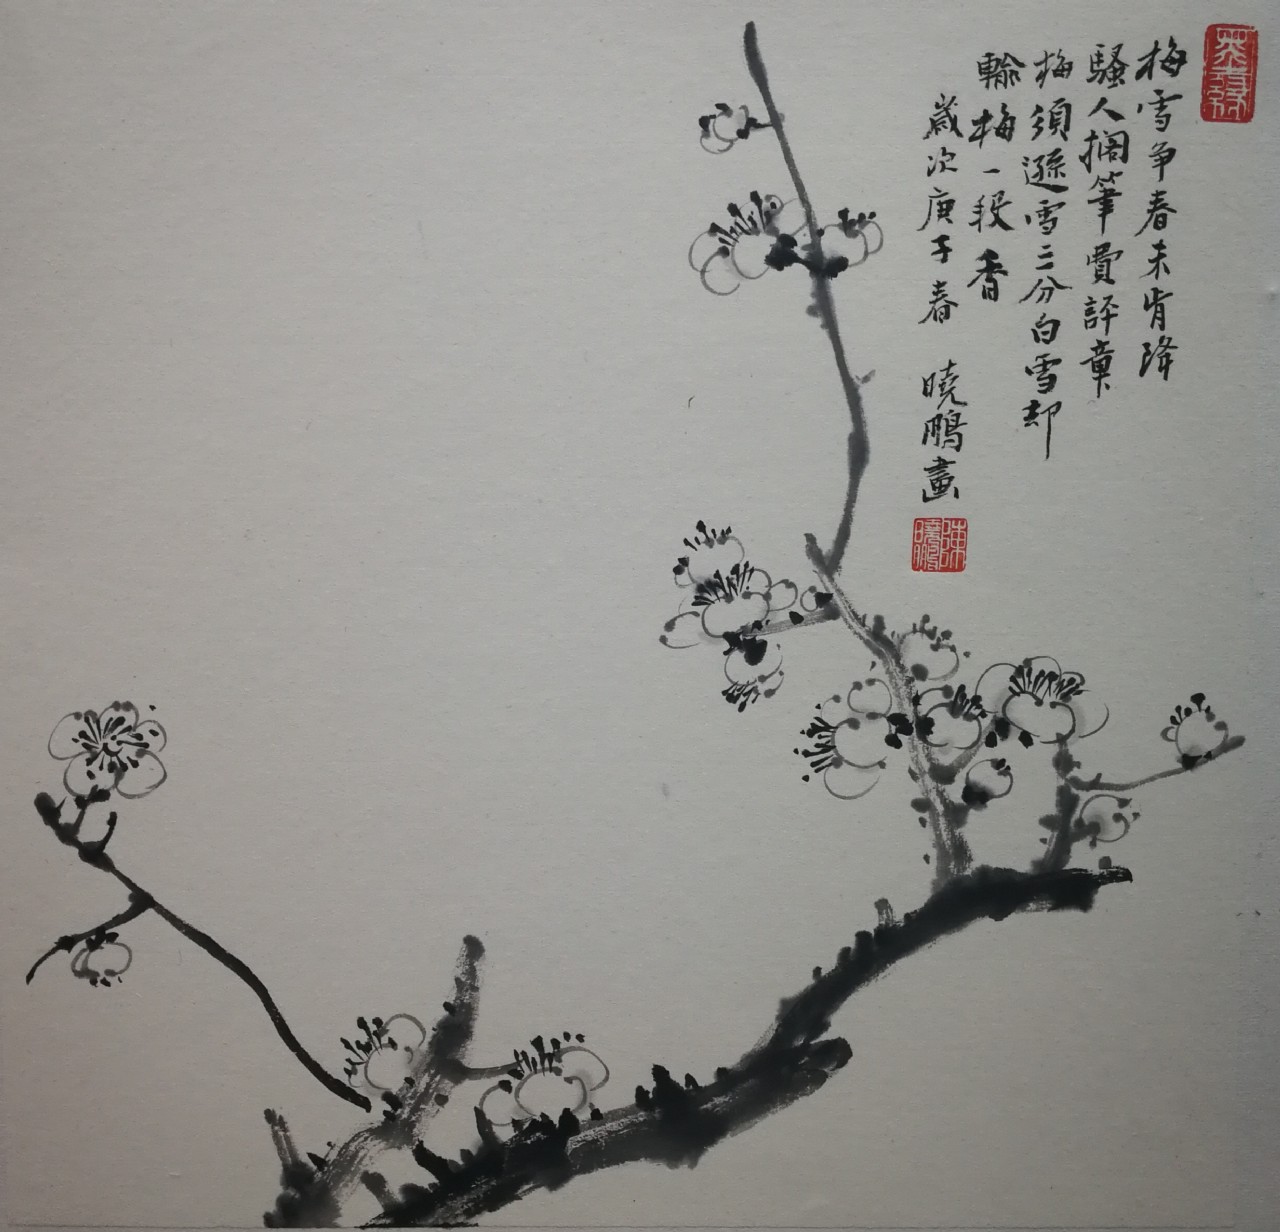 梅雪争春未肯降
騷人擱筆費評章
梅須遜雪三分白雪却
輸梅一段香
歲次庚子春 曉鵬畫
陳曉鵬